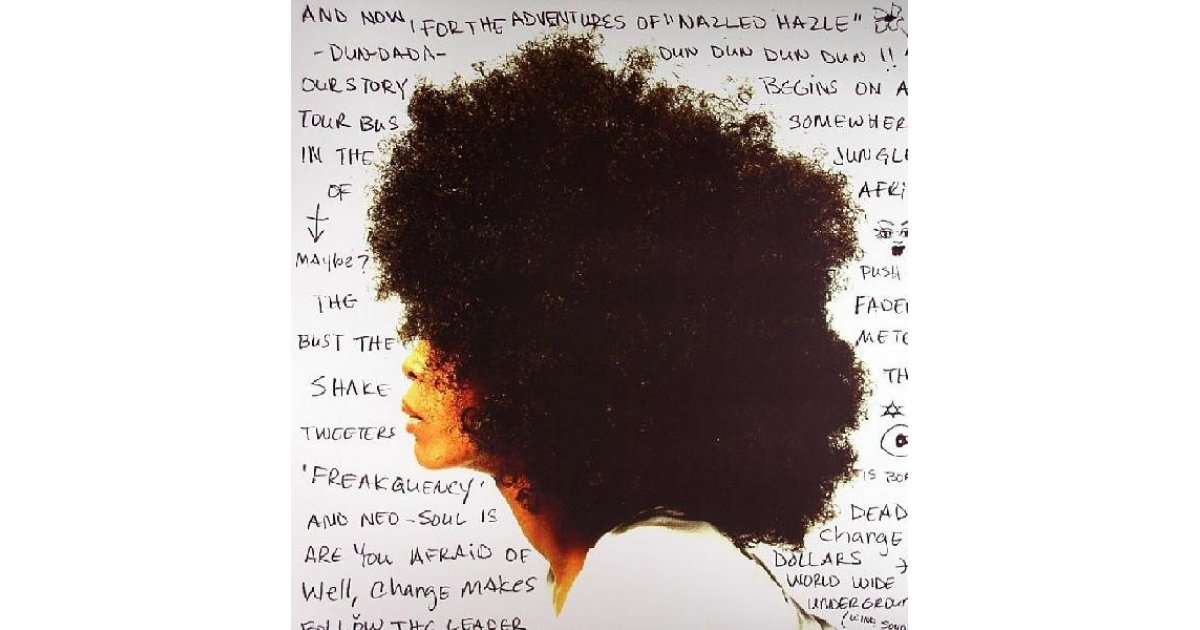 AND NOW, FOR THE ADVENTURES OF "NAZLED HAZLE"
-DUN-DA-DA- DUN DUN DUN DUN !!
OUR STORY BEGINS ON A
TOUR BUS SOMEWHER
IN THE JUNGLE
OF AFRI
MAYbe? PUSH
THE FADER
BUST THE METE
SHAKE TH
TWEETERS
'FREAKQUENCY' IS BOR
AND NEO-SOUL IS DEAD
ARE YOU AFRAID OF Change
Well, Change MAKES DOLLARS
WORLD WIDE
FOLLOW THE LEADER UNDERGROUN
(WIND SOUN